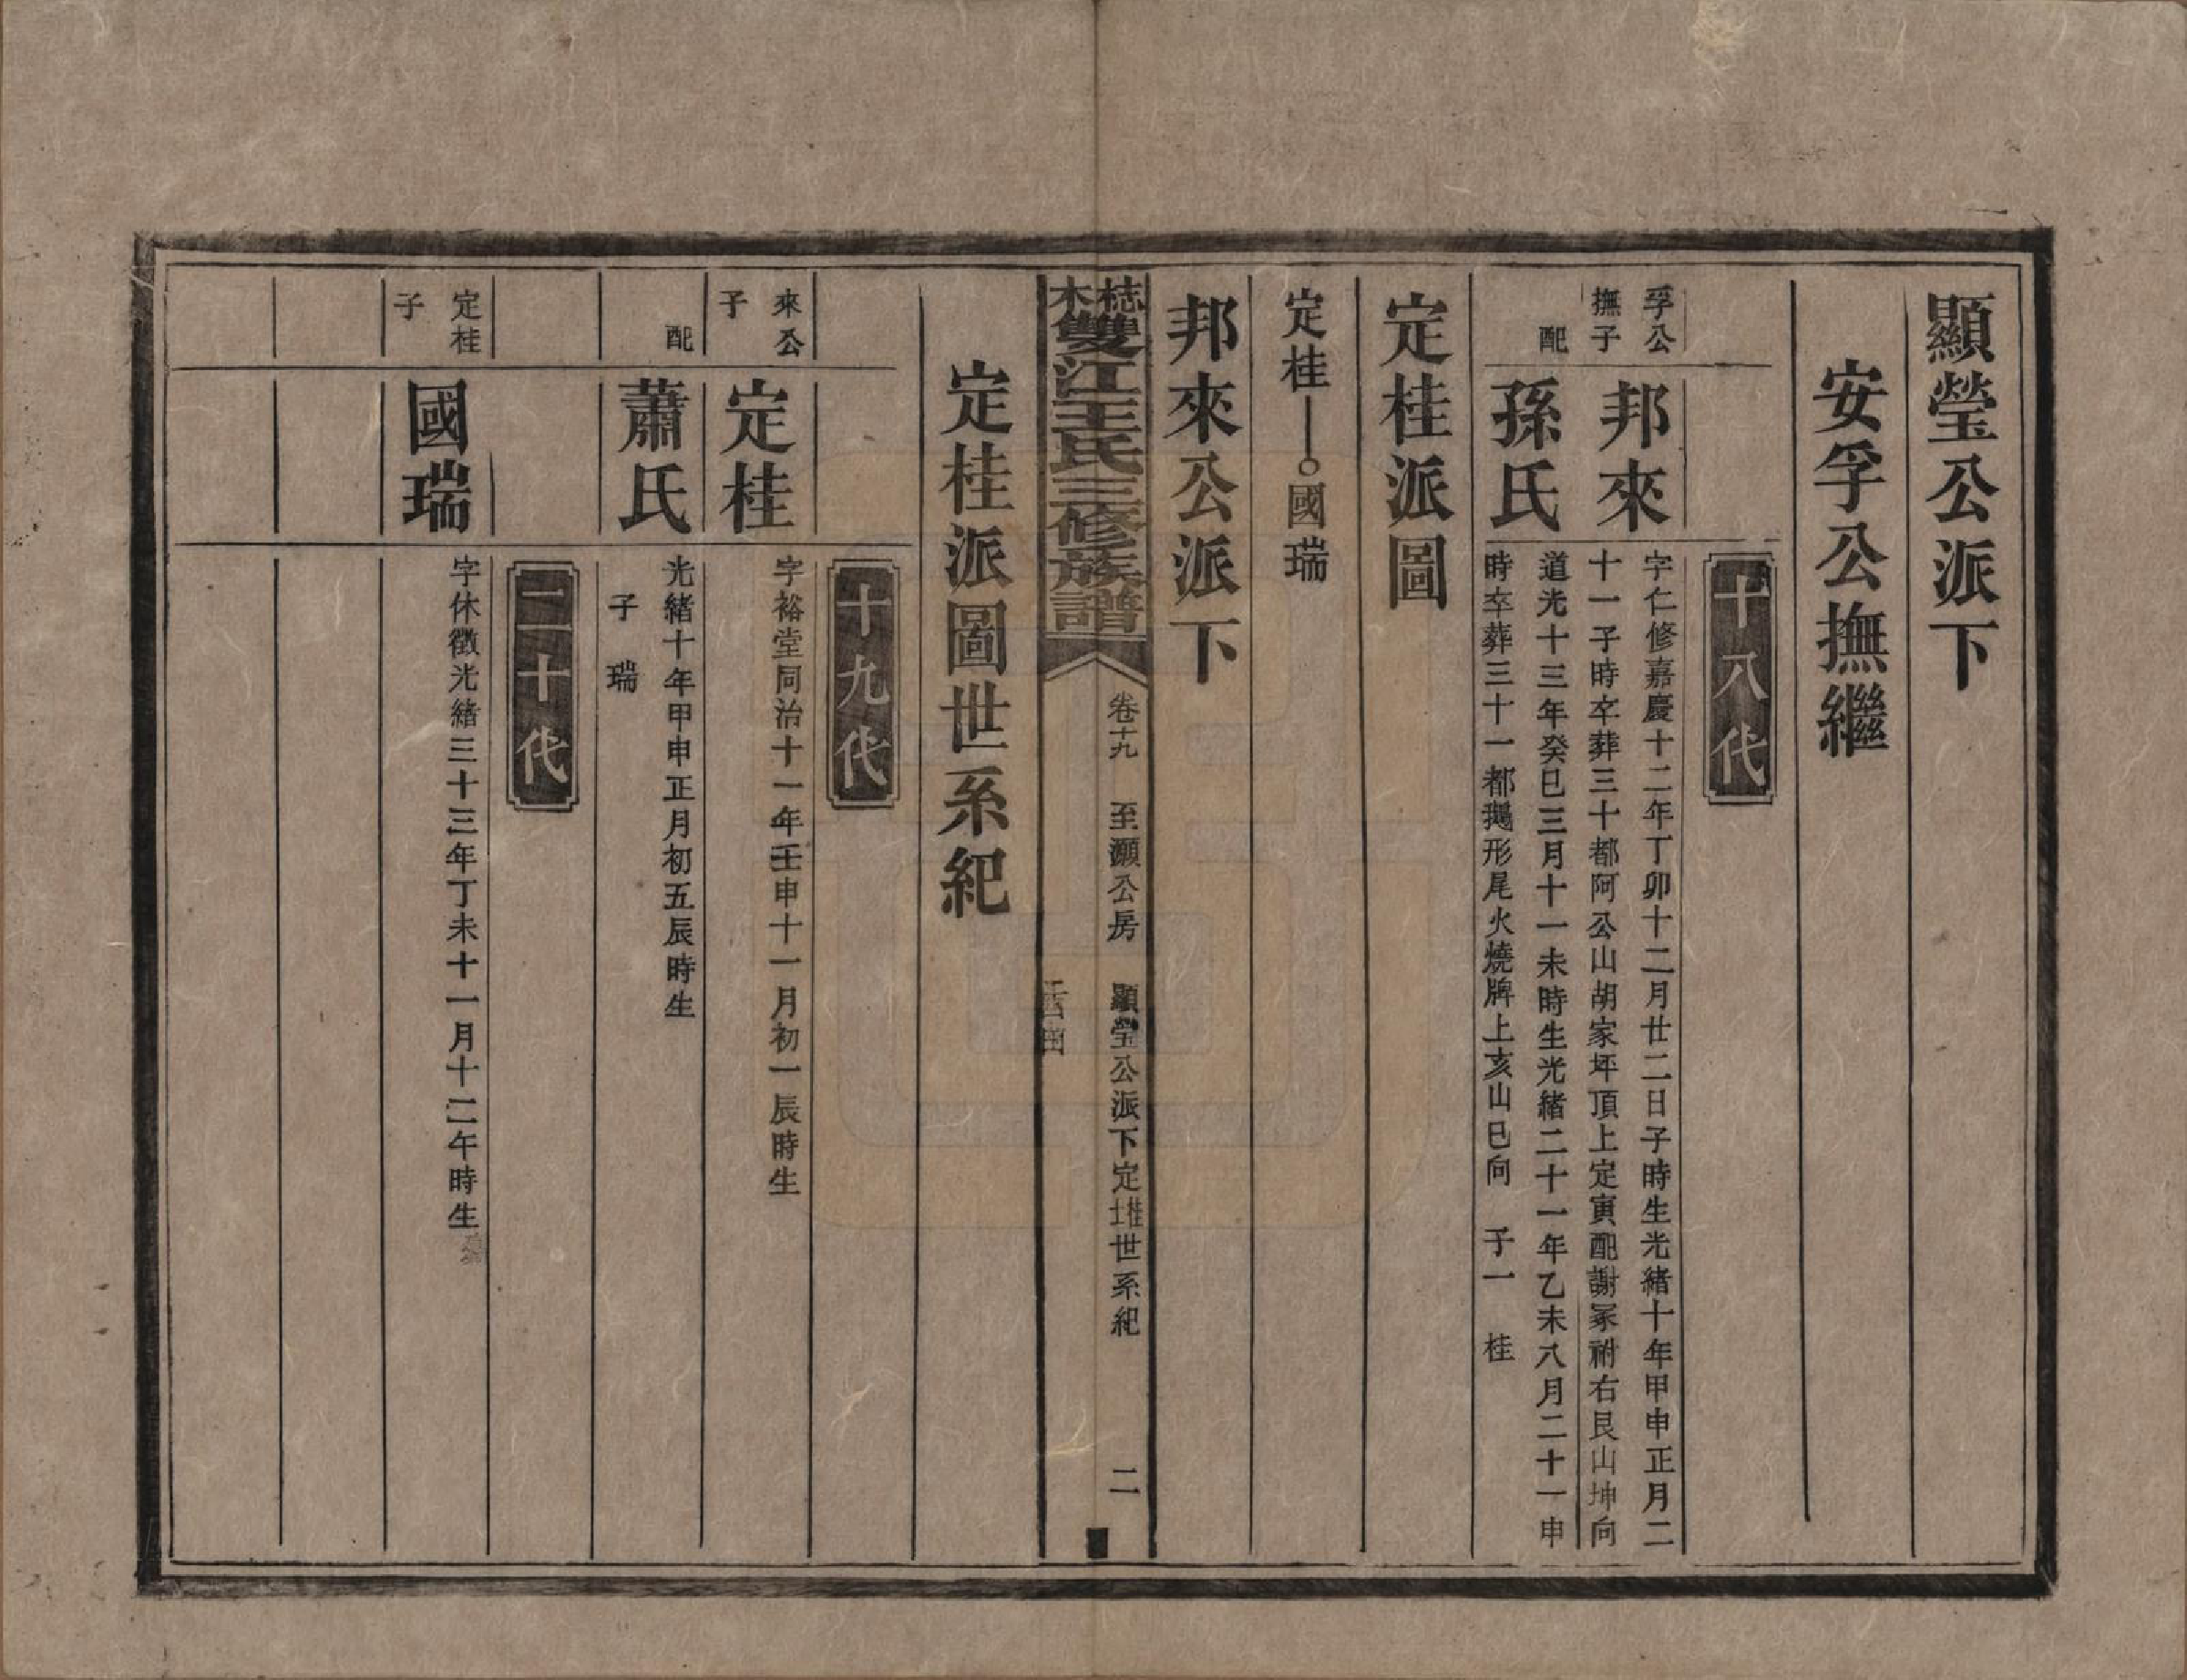 顯瑩公派下
安孚公撫繼
十八代
孚公
撫子
邦來
字仁修嘉慶十二年丁卯十二月廿二日子時生光緒十年甲申正月二
十一子時卒葬三十都阿公山胡家坪頂上定寅配謝冢祔右艮山坤向
配
孫氏
道光十三年癸巳三月十一未時生光緒二十一年乙未八月二十一申
時卒葬三十一都鵝形尾火燒牌上亥山巳向 子一 桂
定桂派圖
定桂——○國瑞
邦來公派下
梽木雙江王氏三修族譜
卷十九 至灝公房 顯瑩公派下定桂世系紀 二
定桂派圖世系紀
十九代
來公
子
定桂
字裕堂同治十一年壬申十一月初一辰時生
配
蕭氏
光緒十年甲申正月初五辰時生
子 瑞
二十代
定桂
子
國瑞
字休徵光緒三十三年丁未十一月十二午時生